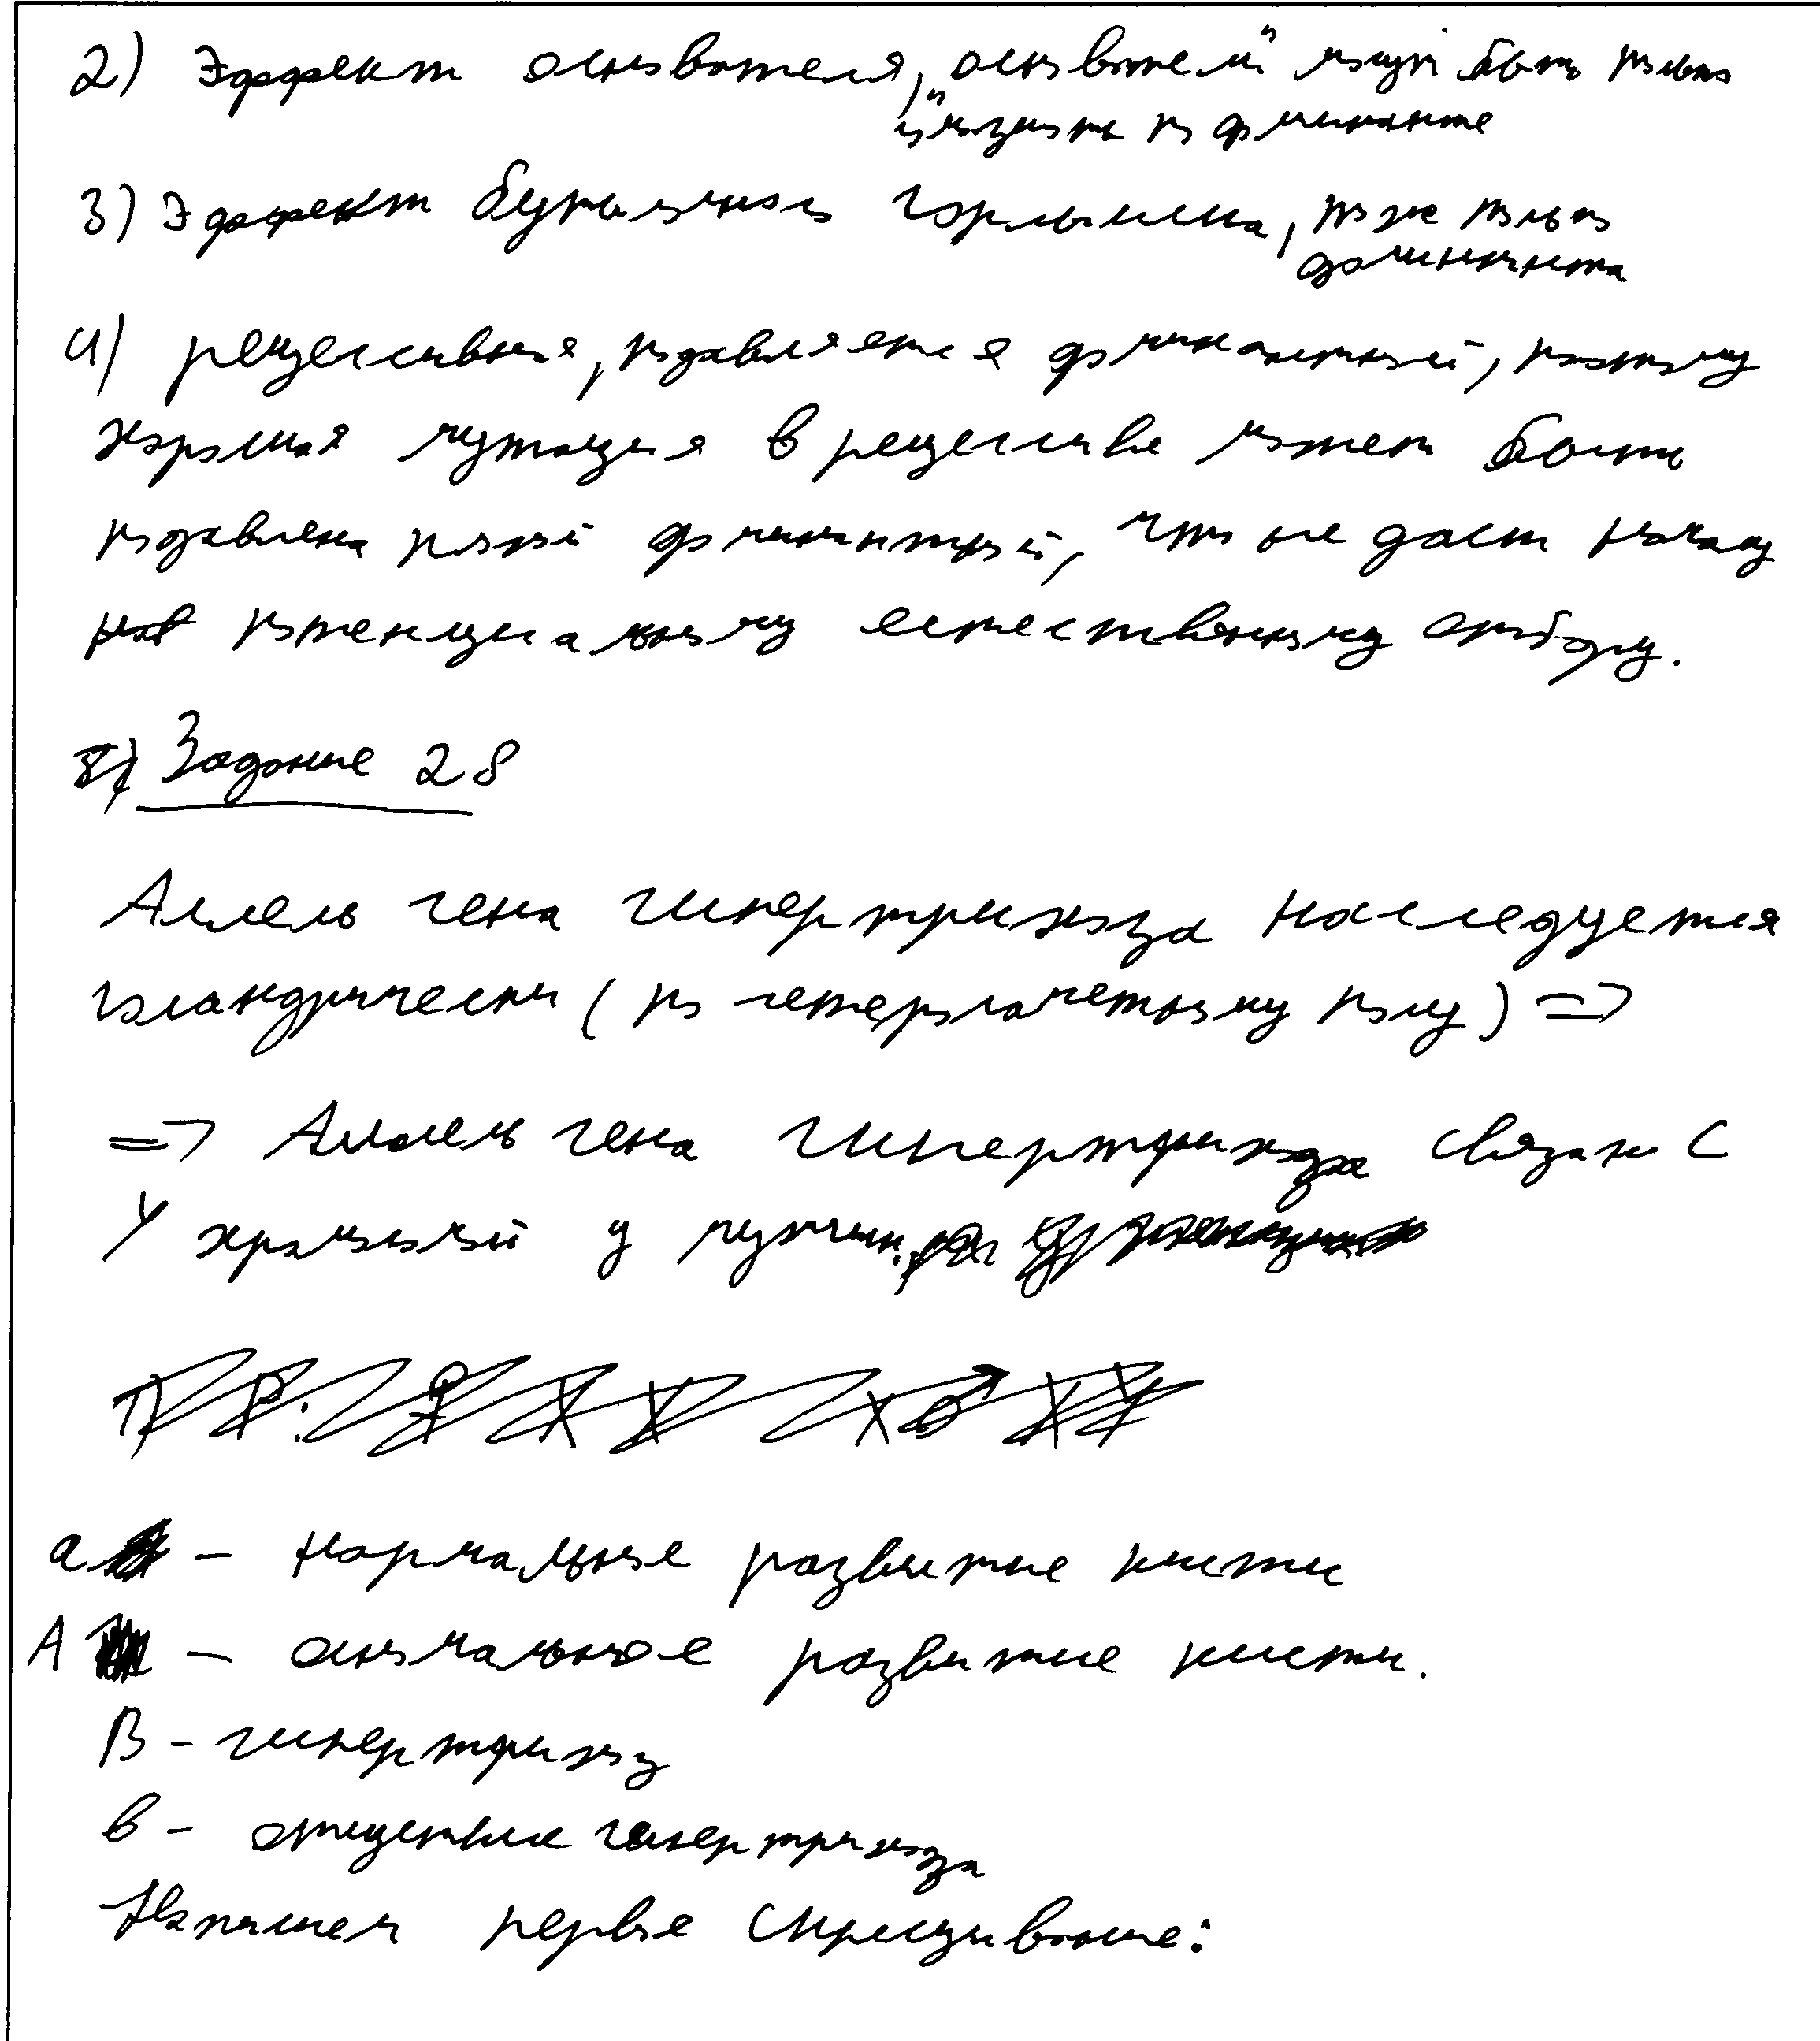 2) Эффект основателя, "основатели" могут быть только
и мутанты по доминанте
3) Эффект бутылочного горлышка, то же только
доминанта
4) рецессивная, подавляется доминантной, поэтому
хорошая мутация в рецессиве может быть
подавлена плохой доминантной, что не даст началу
потенциальному естественному отбору.
Задание 28
Аллель гена гипертрихоза наследуется
голандрически (по гетерогаметному полу) =>
=> Аллель гена гипертрихоза связан с
Y хромосомой у мужчин.
а - нормальное развитие кисти
А - аномальное развитие кисти.
В - гипертрихоз
в - отсутствие гипертрихоза
Напишем первое скрещивание: